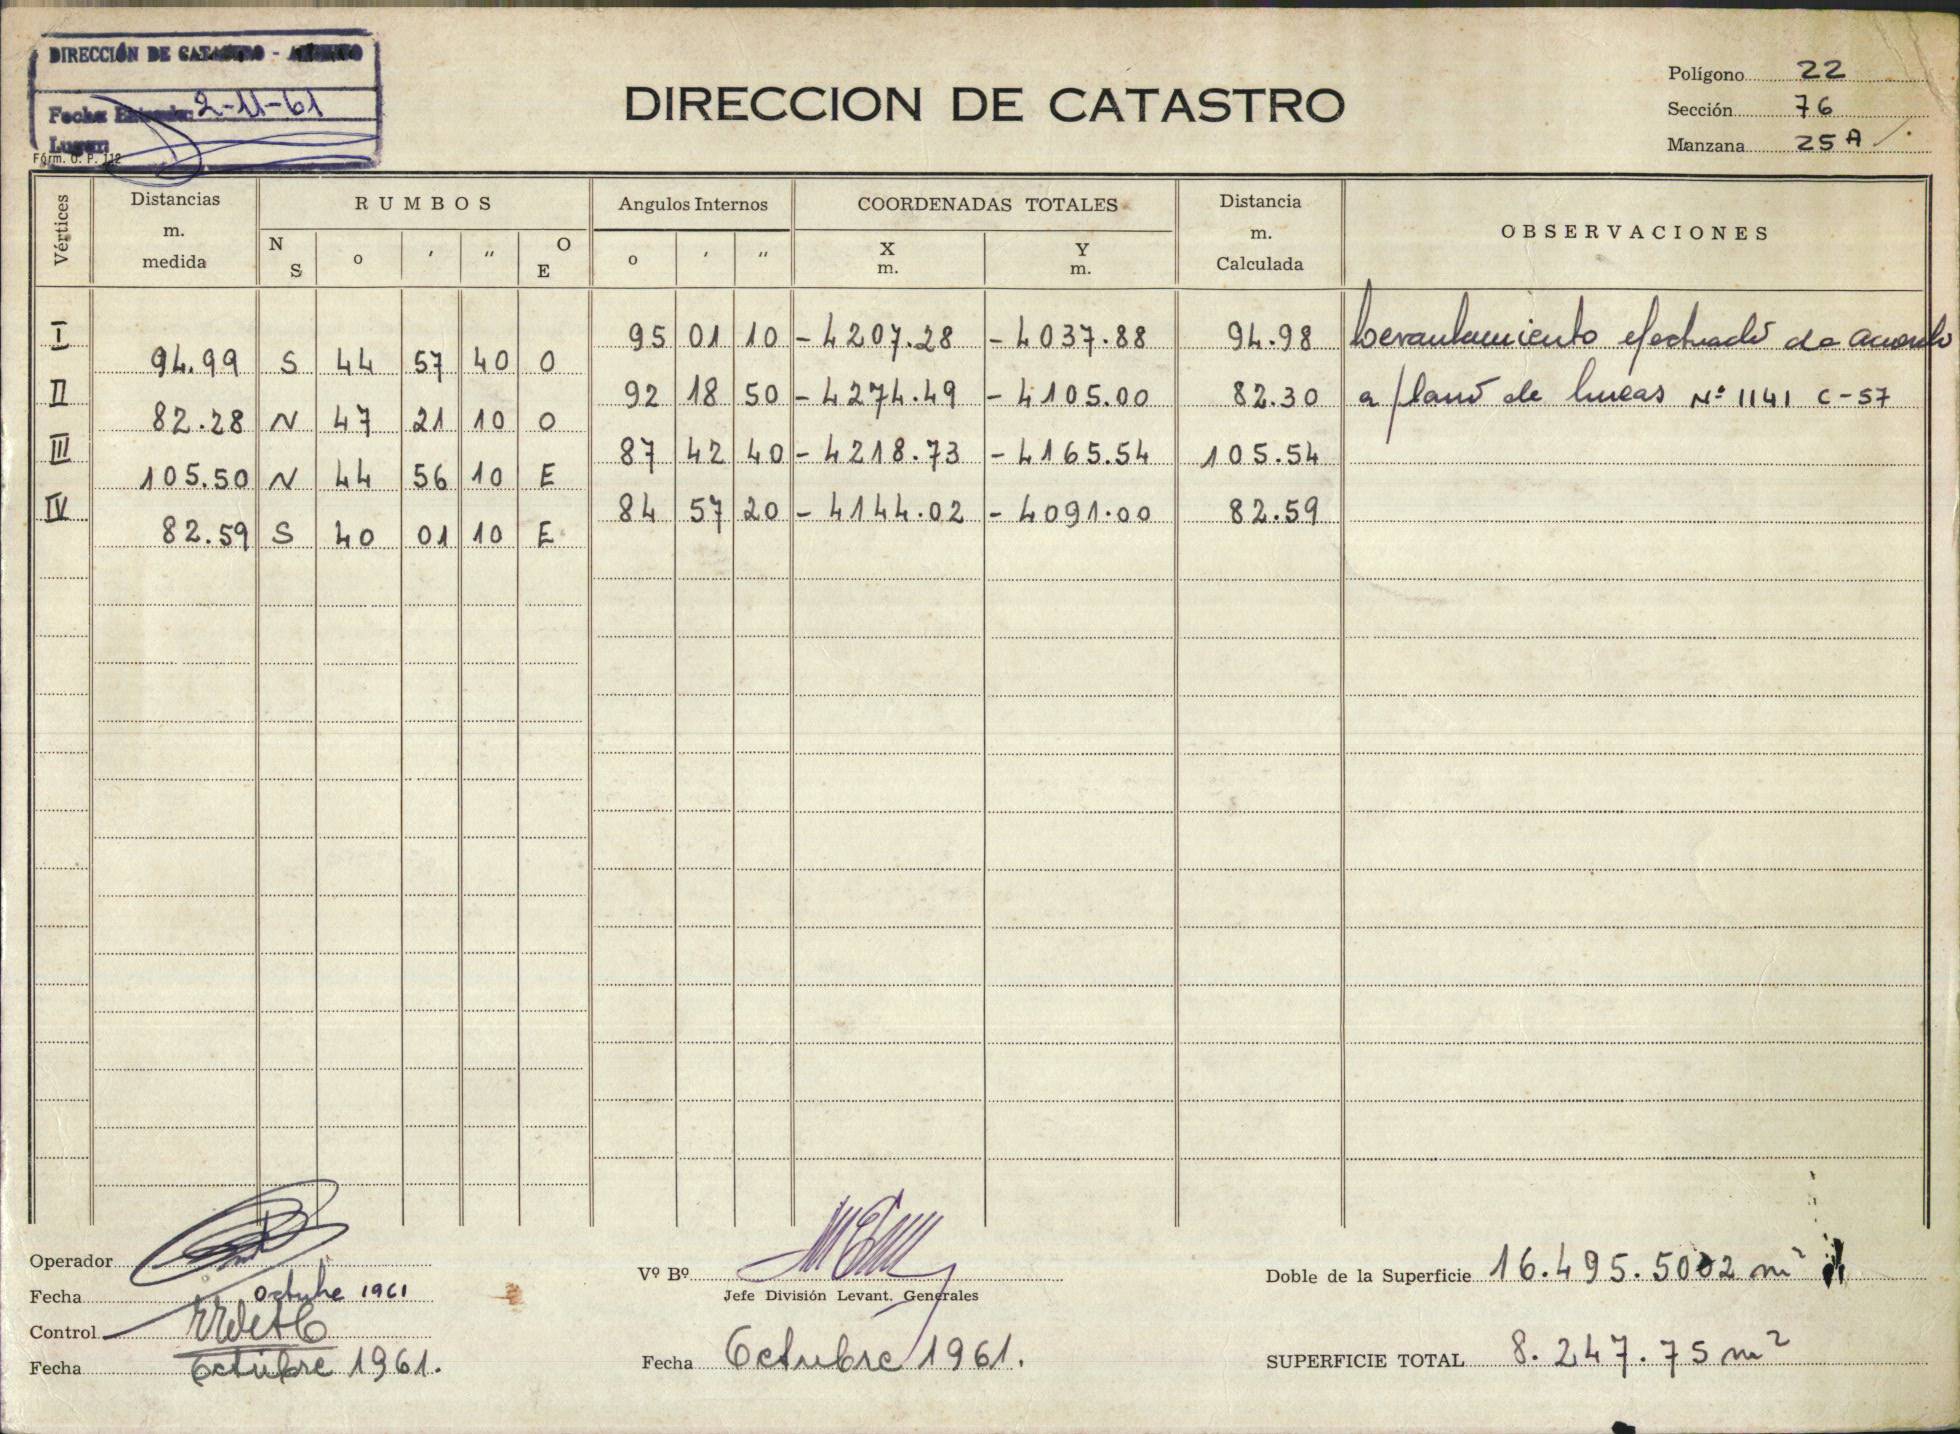 DIRECCIÓN DE CATASTRO -
Fecha Entrada: 2-11-61
Lugar:
Fórm. O. P. 112
DIRECCION DE CATASTRO
Polígono 22
Sección 76
Manzana 25 A
Vértices Distancias m. medida RUMBOS Angulos Internos COORDENADAS TOTALES Distancia m. Calculada OBSERVACIONES
N S o ′ ″ O E o ′ ″ X m. Y m.
I 95 01 10 - 4207.28 - 4037.88 94.98 Levantamiento efectuado de acuerdo
94.99 S 44 57 40 O
II 92 18 50 - 4274.49 - 4105.00 82.30 a plano de lineas Nº 1141 C-57
82.28 N 47 21 10 O
III 87 42 40 - 4218.73 - 4165.54 105.54
105.50 N 44 56 10 E
IV 84 57 20 - 4144.02 - 4091.00 82.59
82.59 S 40 01 10 E
Operador
Fecha octubre 1961
Control
Fecha Octubre 1961.
Vº Bº
Jefe División Levant. Generales
Fecha Octubre 1961.
Doble de la Superficie 16.495.5002 m²
SUPERFICIE TOTAL 8.247.75 m²